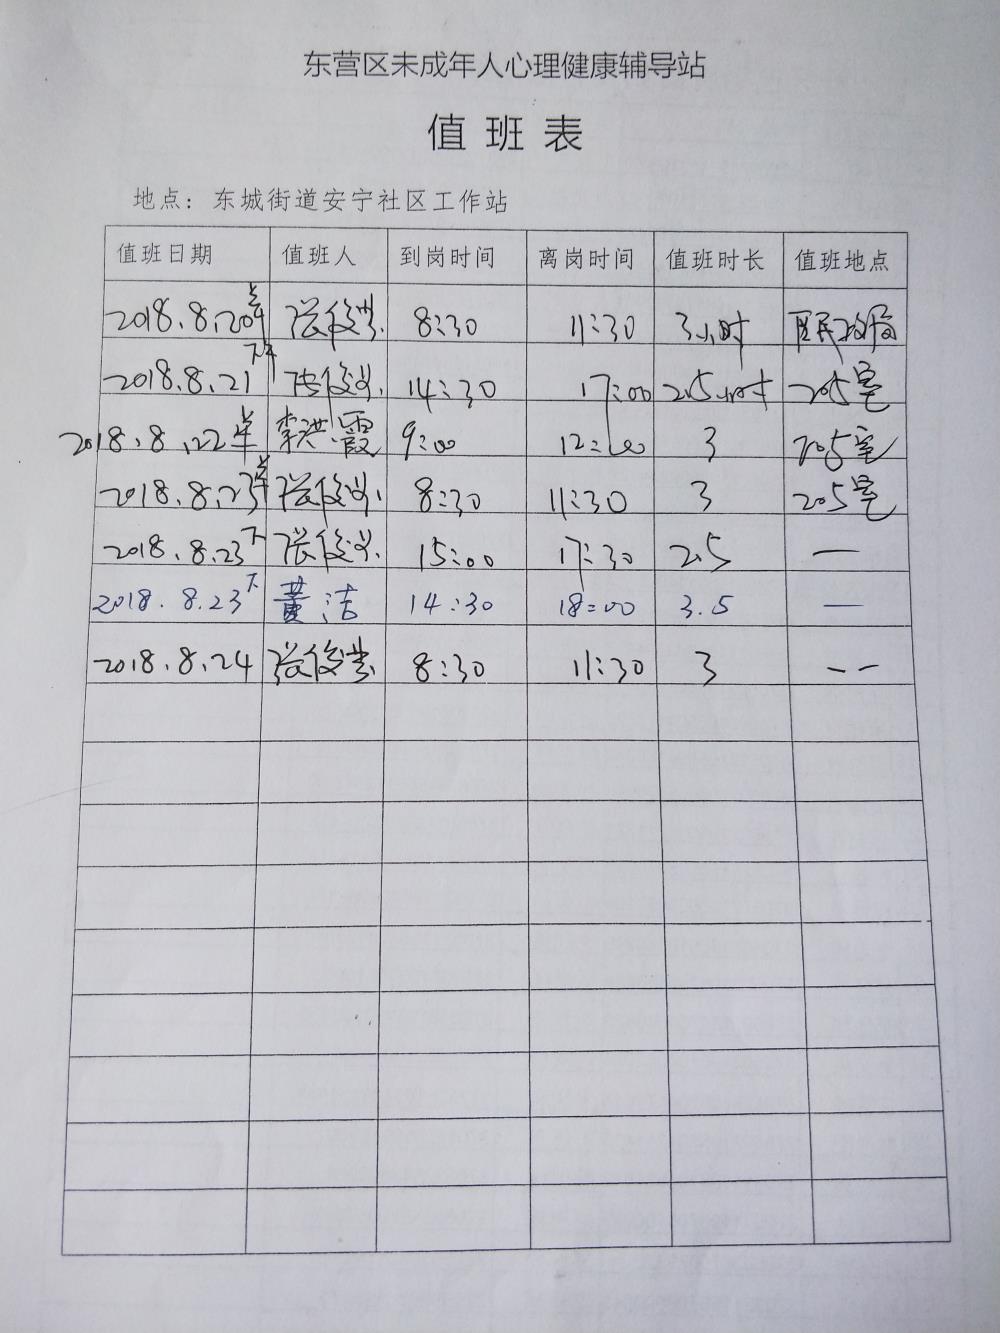 东营区未成年人心理健康辅导站
值班表
地点：东城街道安宁社区工作站
值班日期 值班人 到岗时间 离岗时间 值班时长 值班地点
2018.8.20 张俊 8:30 11:30 3小时 区民政局
2018.8.21 下午 张俊 14:30 17:00 2.5小时 205室
2018.8.22 李洪霞 9:00 12:00 3 205室
2018.8.23 张俊 8:30 11:30 3 205室
2018.8.23 下 张俊 15:00 17:30 2.5 —
2018.8.23 下 黄洁 14:30 18:00 3.5 —
2018.8.24 张俊 8:30 11:30 3 --